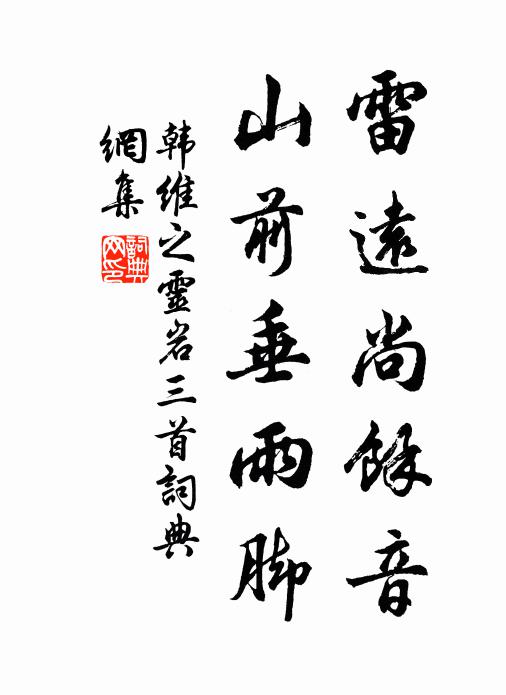 雷遠尚餘音
山前垂雨脚
韩维之靈岩三首詞典
網集
詞典网印